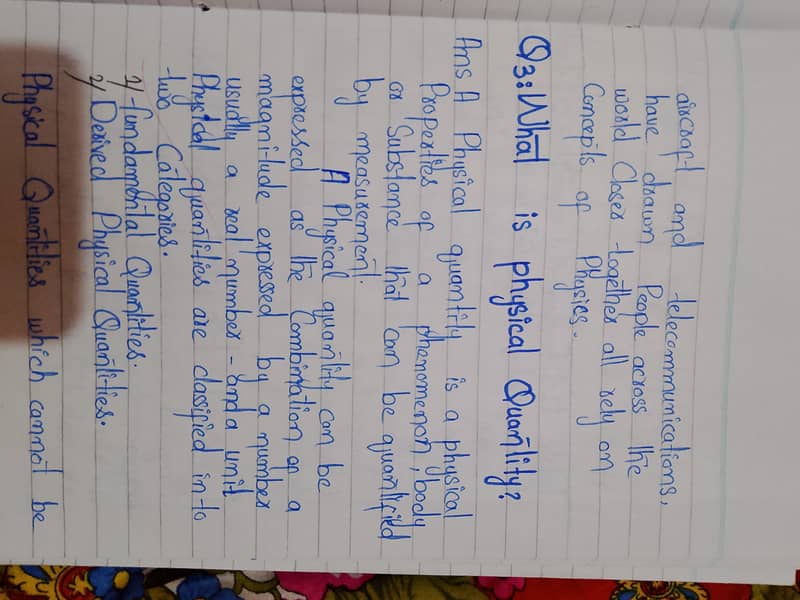 aircraft and telecommunications,
have drawn People across the
world Closer together all rely on
Concepts of Physics.
Q3: What is physical Quantity?
Ans A Physical quantity is a physical
Properties of a phenomenon, body
or Substance that can be quantified
by measurement.
A Physical quantity can be
expressed as the Combination on a
magnitude expressed by a number
usually a real number - and a unit
Physical quantities are classified in to
two Categories.
1) fundamental Quantities.
2) Derived Physical Quantities.
Physical Quantities which cannot be